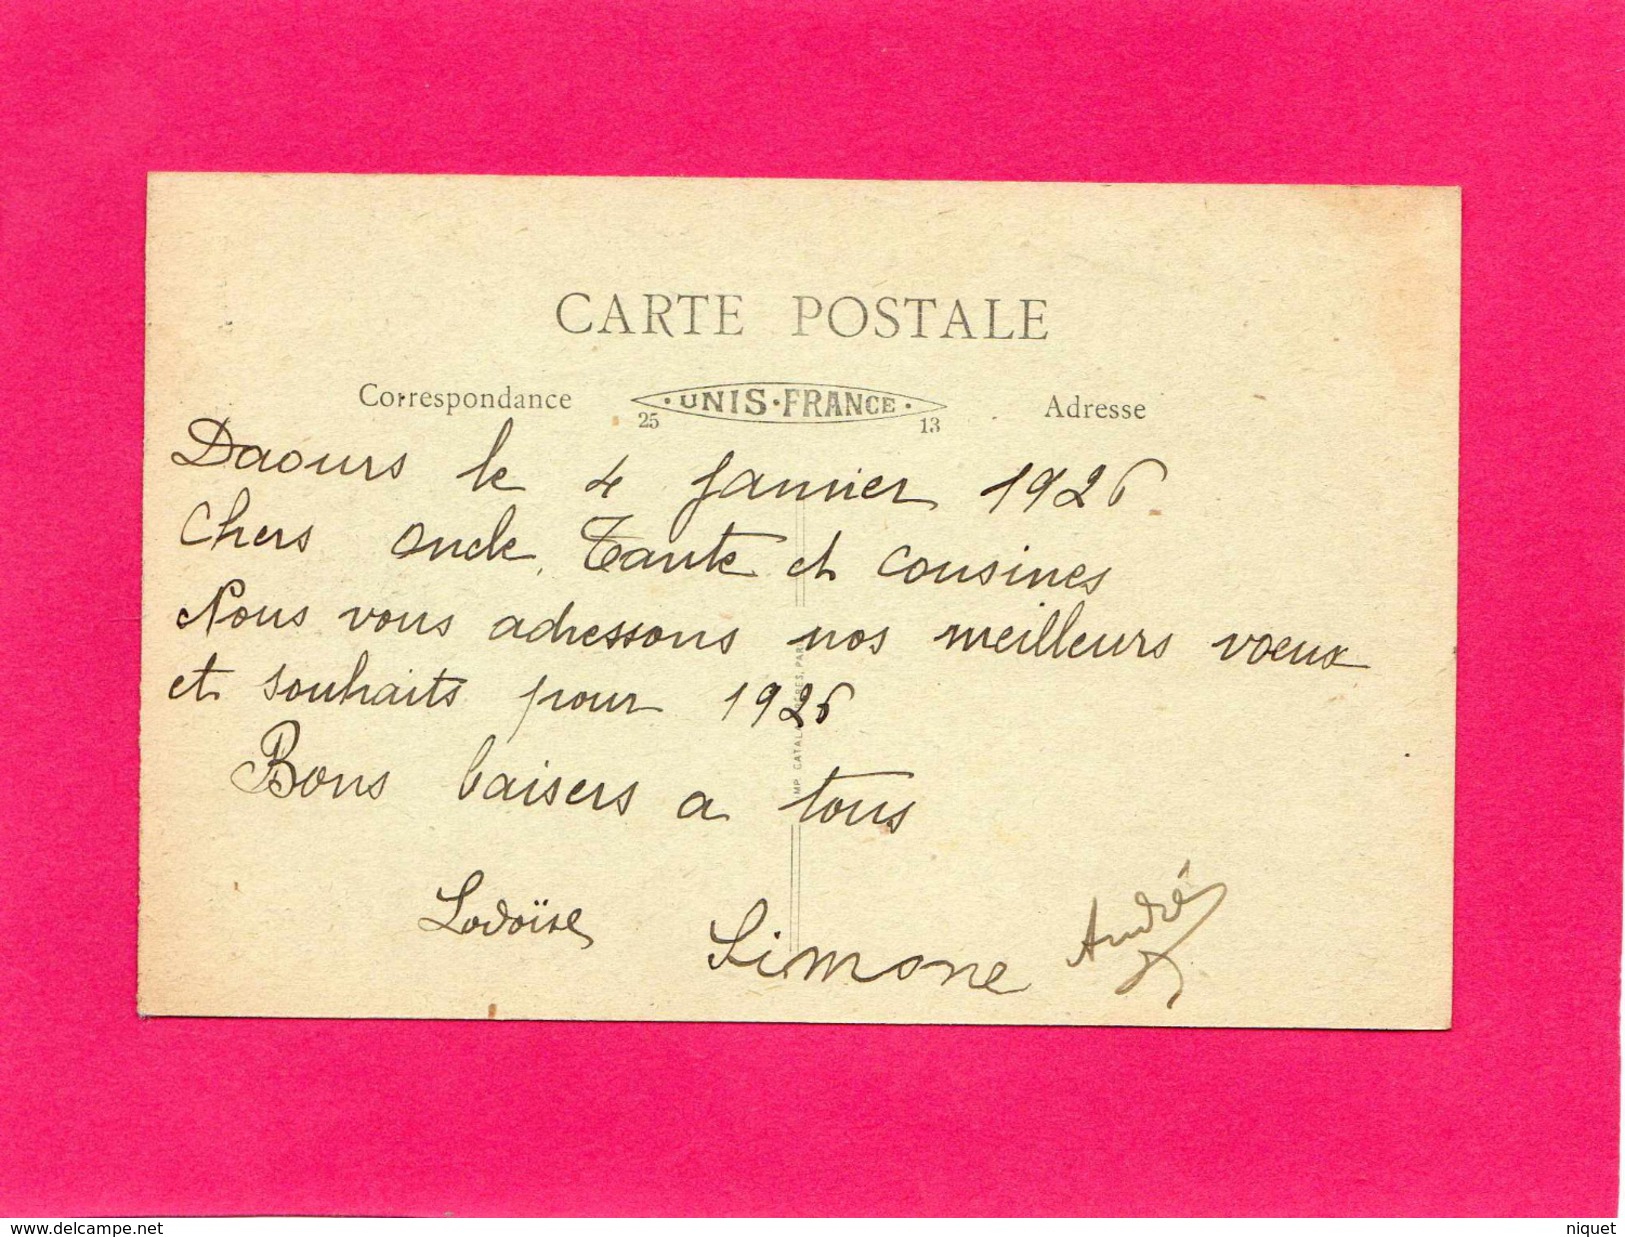 CARTE POSTALE
Correspondance
UNIS·FRANCE
25 13
Adresse
Daours le 4 Janvier 1926.
Chers Oncle, Tante et Cousines
Nous vous adressons nos meilleurs vœux
et souhaits pour 1926
Bons baisers a tous
Lodoïse Simone André
www.delcampe.net
niquet